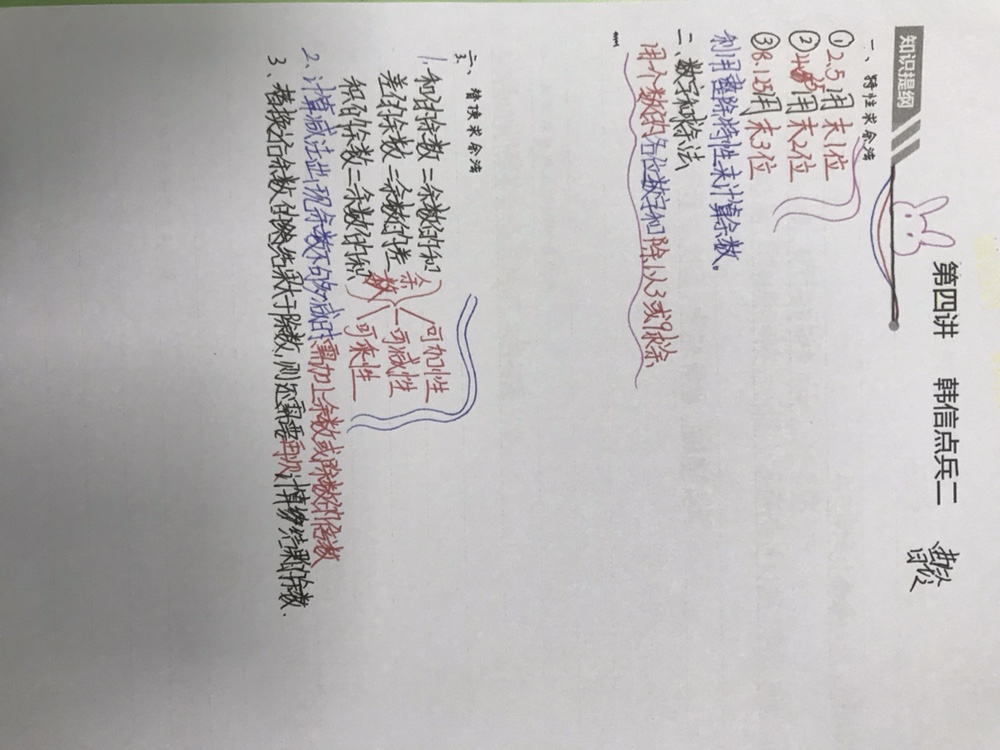 第四讲 韩信点兵二
知识提纲
一、特性求余法
①2.5用末1位
②4.25用末2位
③8.125用末3位
利用整除特性来计算余数。
二、数字和求余法
用个数的各位数字和除以3或9求余
三、替换求余法
1.和的余数=余数的和
差的余数=余数的差
积的余数=余数的积
余数
可加性
可减性
可乘性
2、计算减法出现余数不够减时需加上余数或除数的倍数
3、替换后余数的映先果大于除数,则还需要再次计算该结果的余数.